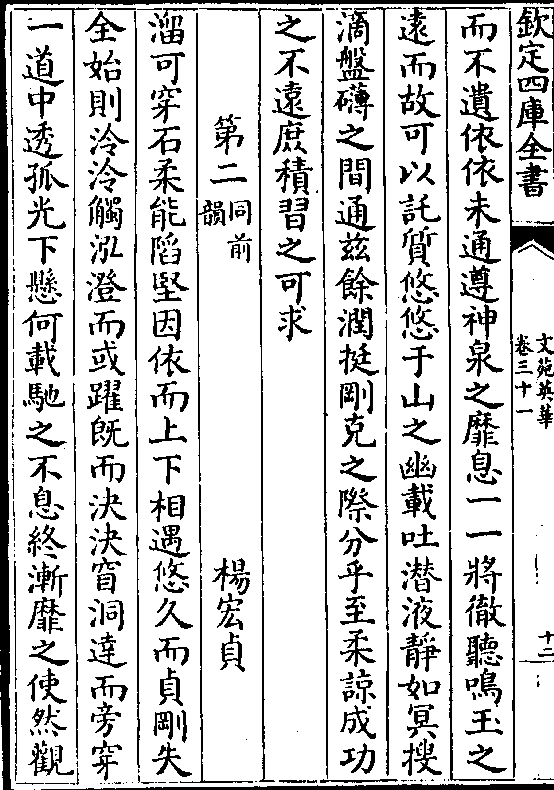 欽定四庫全書
文苑英華
卷三十一
十二
而不遺依依未通遵神泉之靡息一一將徹聽鳴玉之
遠而故可以託質悠悠于山之幽載吐潜液靜如冥搜
滴盤礴之間通兹餘潤挺剛克之際分乎至柔諒成功
之不遠庶積習之可求
第二同前韻
楊宏貞
溜可穿石柔能䧟堅因依而上下相遇悠久而貞剛失
全始則泠泠觸泓澄而或躍旣而決決窅洞達而旁穿
一道中透孤光下懸何載馳之不息終漸靡之使然觀